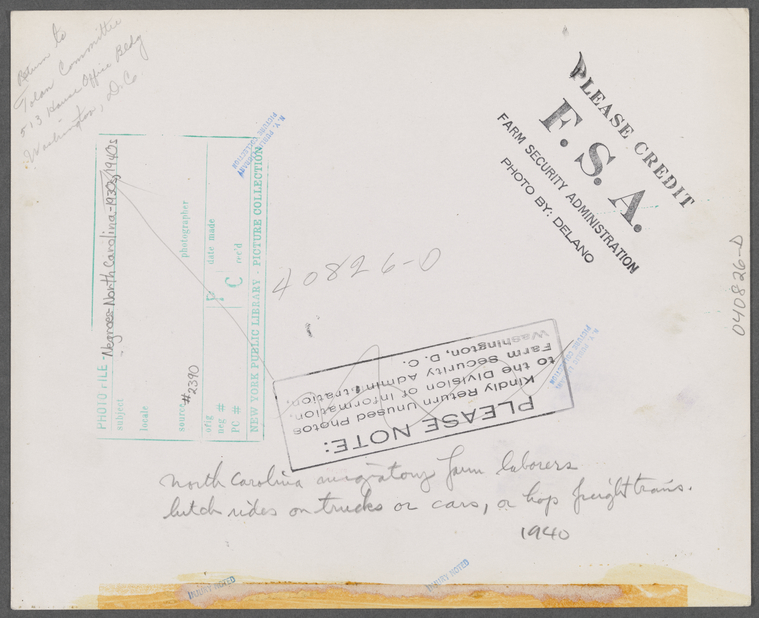 Return to
Tolan Committee
513 House Office Bldg
Washington, D.C.
PLEASE CREDIT
F. S. A.
FARM SECURITY ADMINISTRATION
PHOTO BY: DELANO
N. Y. PUBLIC LIBRARY
PICTURE COLLECTION
PHOTO FILE - Negroes - North Carolina - 1930s, 1940s
subject
locale
source #2390
photographer
orig
neg #
PC #
date made
rec'd
NEW YORK PUBLIC LIBRARY - PICTURE COLLECTION
40826-D
040826-D
PLEASE NOTE:
Kindly Return Unused Photos
to the Division of Information.
Farm Security Administration.
Washington, D. C.
N. Y. PUBLIC LIBRARY
PICTURE COLLECTION
North Carolina migratory farm laborers
hitch rides on trucks or cars, or hop freight trains.
1940
INJURY NOTED
INJURY NOTED